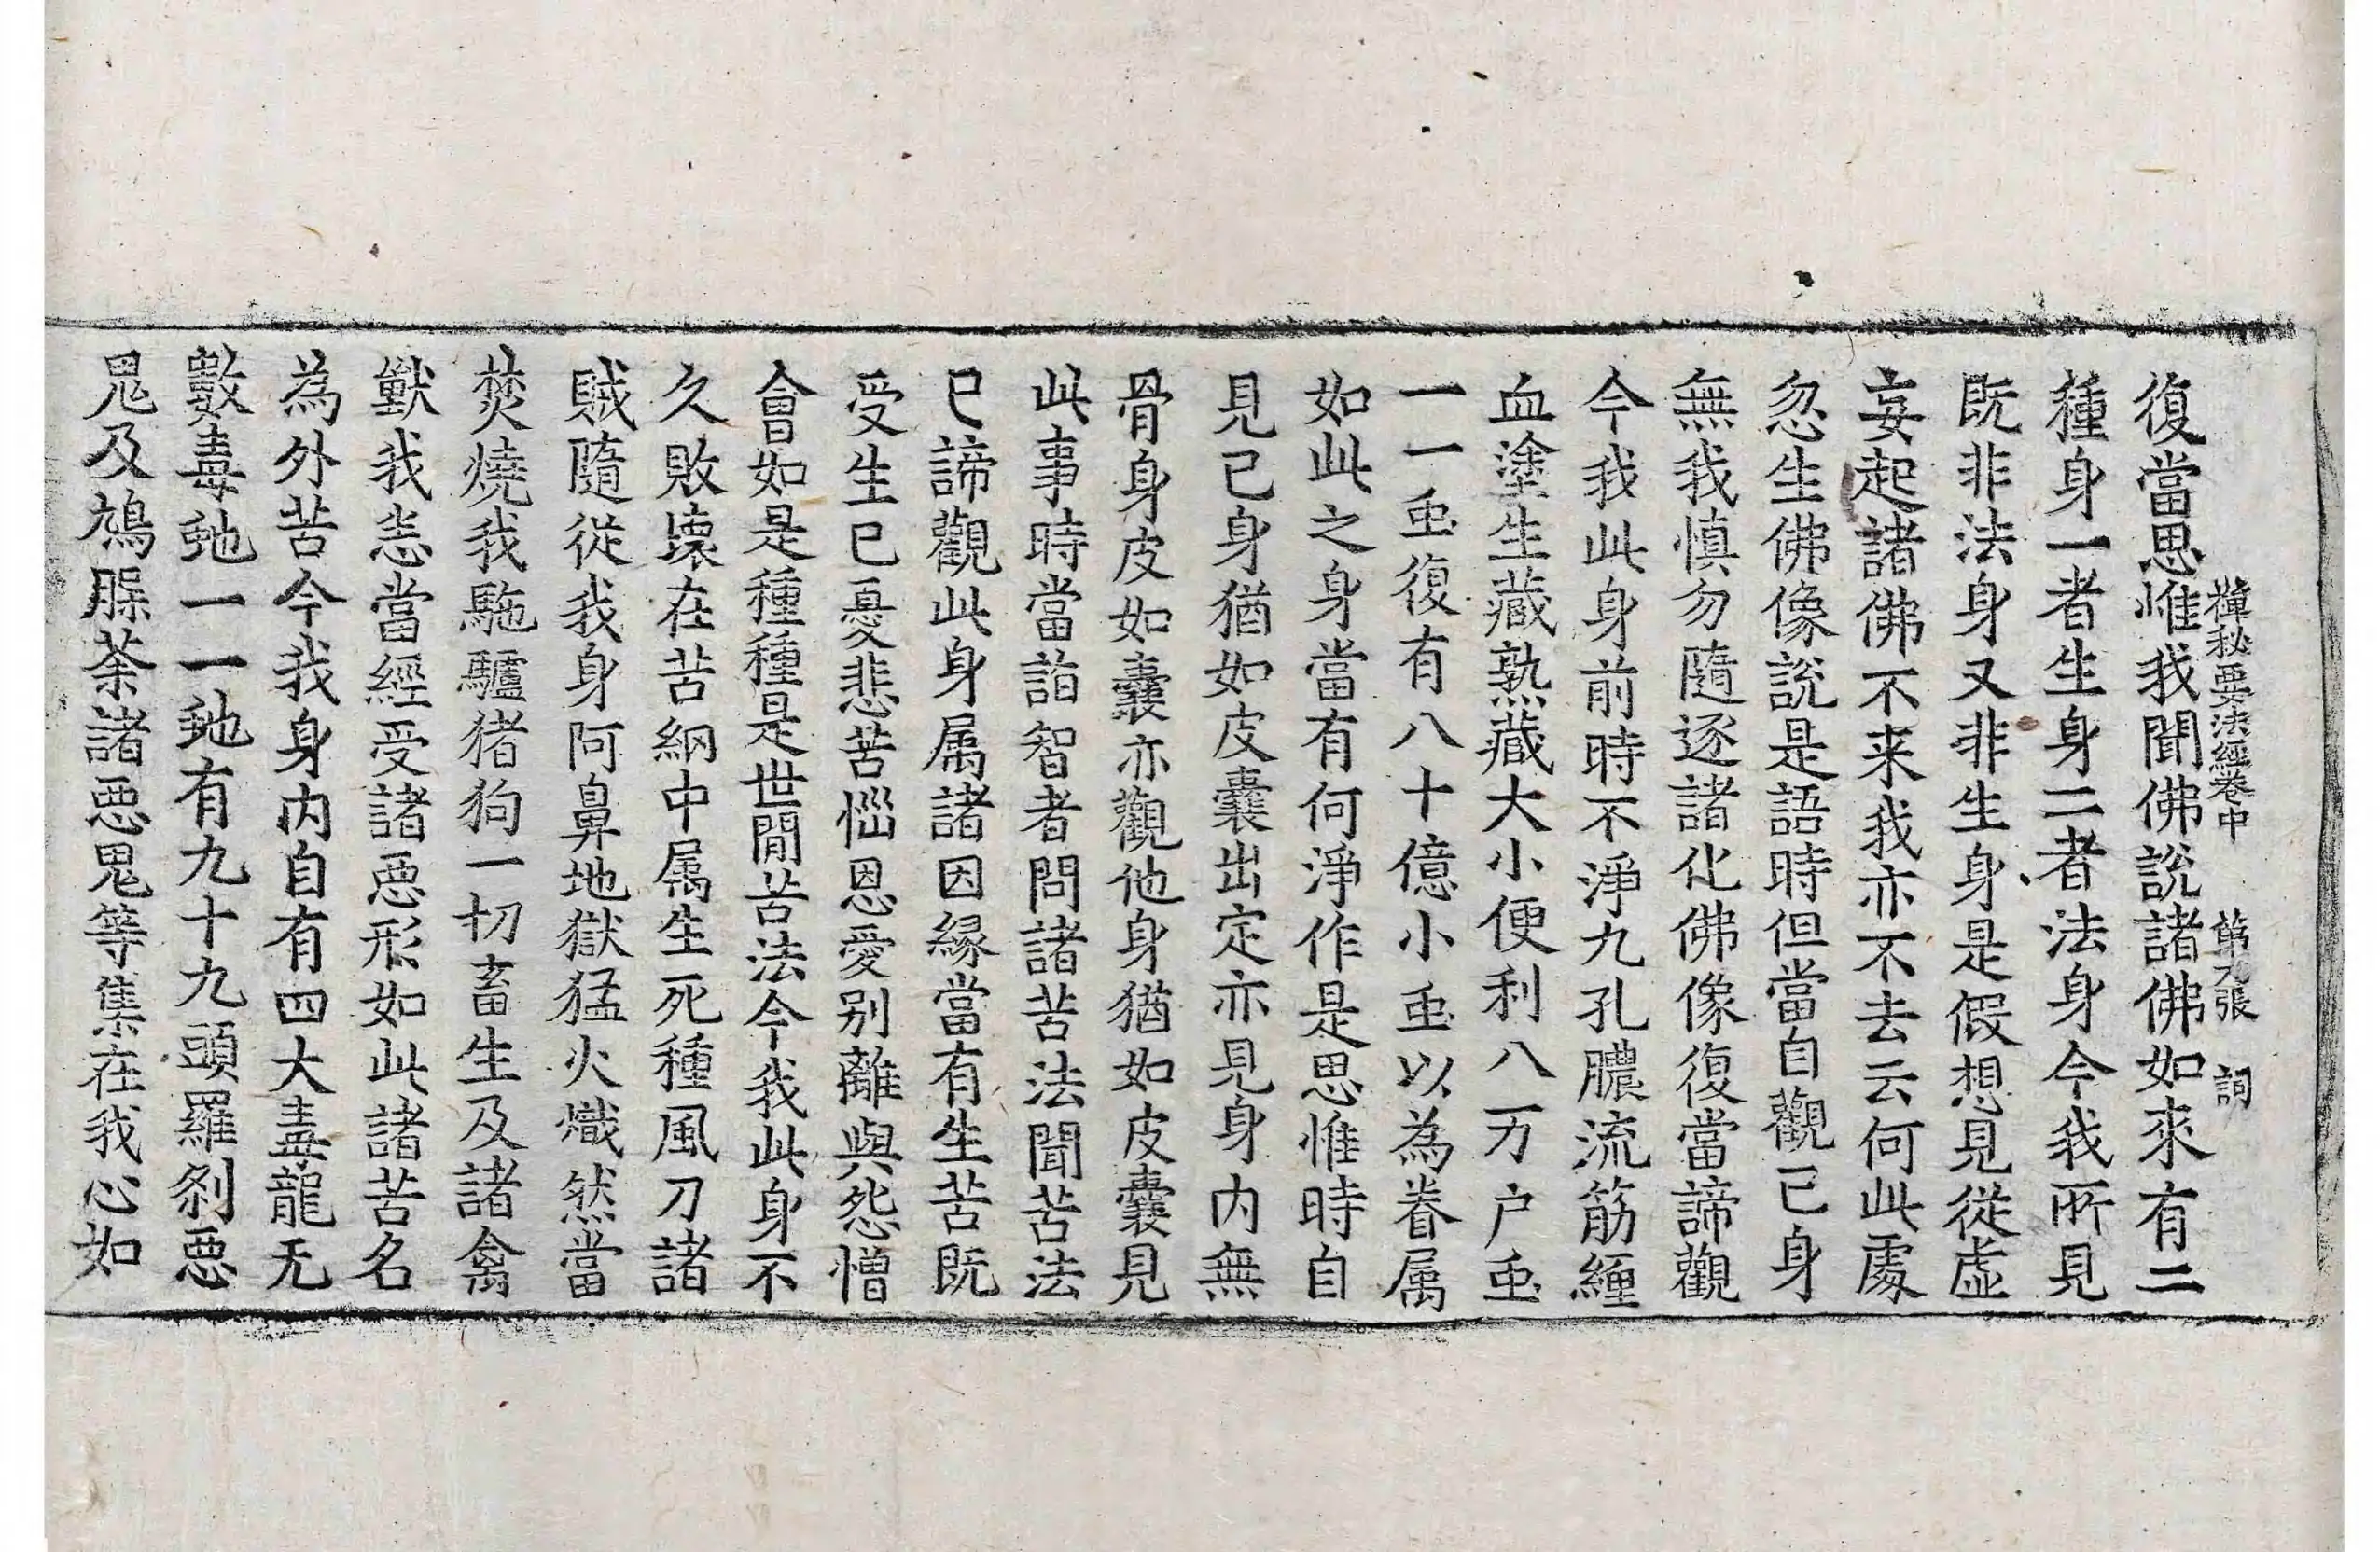 禪秘要法經卷中 第九張 詞
復當思惟我聞佛說諸佛如來有二
種身一者生身二者法身今我所見
既非法身又非生身是假想見從虛
妄起諸佛不来我亦不去云何此處
忽生佛像說是語時但當自觀己身
無我慎勿隨逐諸化佛像復當諦觀
今我此身前時不淨九孔膿流筋纏
血塗生藏熟藏大小便利八万户䖝
一一䖝復有八十億小䖝以為眷属
如此之身當有何淨作是思惟時自
見己身猶如皮囊出定亦見身内無
骨身皮如囊亦觀他身猶如皮囊見
此事時當詣智者問諸苦法聞苦法
已諦觀此身属諸因緣當有生苦既
受生已憂悲苦惱恩愛别離與怨憎
會如是種種是世間苦法今我此身不
久敗壞在苦網中属生死種風刀諸
賊隨從我身阿鼻地獄猛火熾然當
焚燒我駞驢猪狗一切畜生及諸禽
獸我悉當經受諸惡形如此諸苦名
為外苦今我身内自有四大毒龍无
數毒虵一一虵有九十九頭羅剎惡
鬼及鳩脵荼諸惡鬼等集在我心如